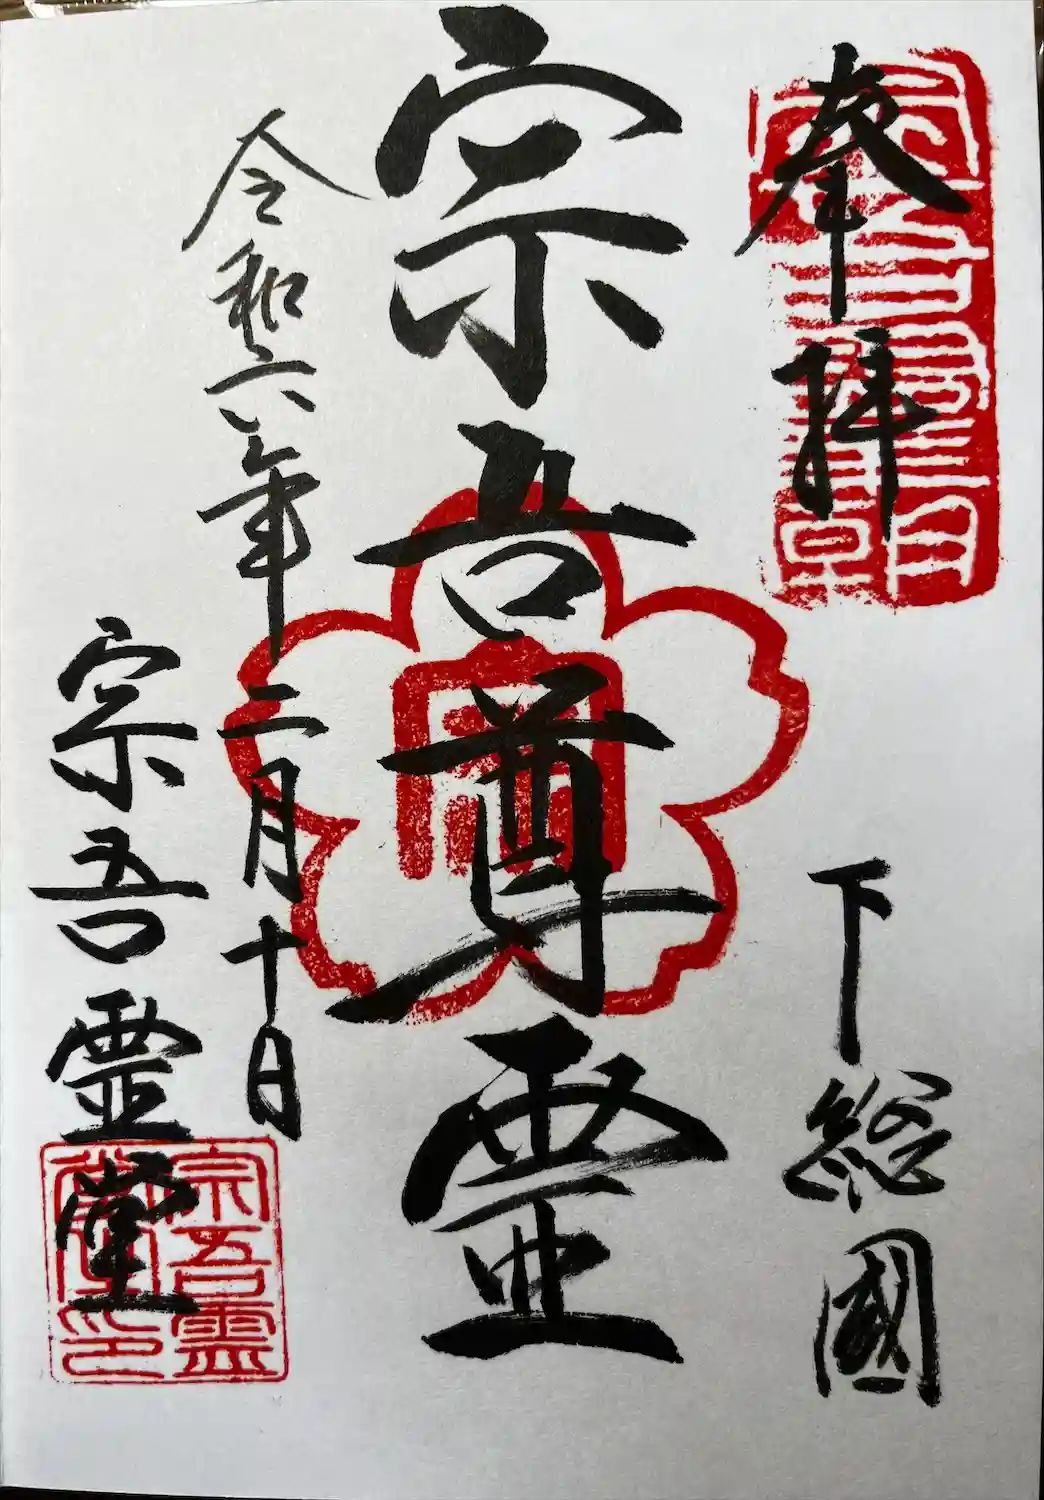 奉拝
下総國
宗吾尊霊
令和六年二月十日
宗吾霊堂
宗吾霊
堂印